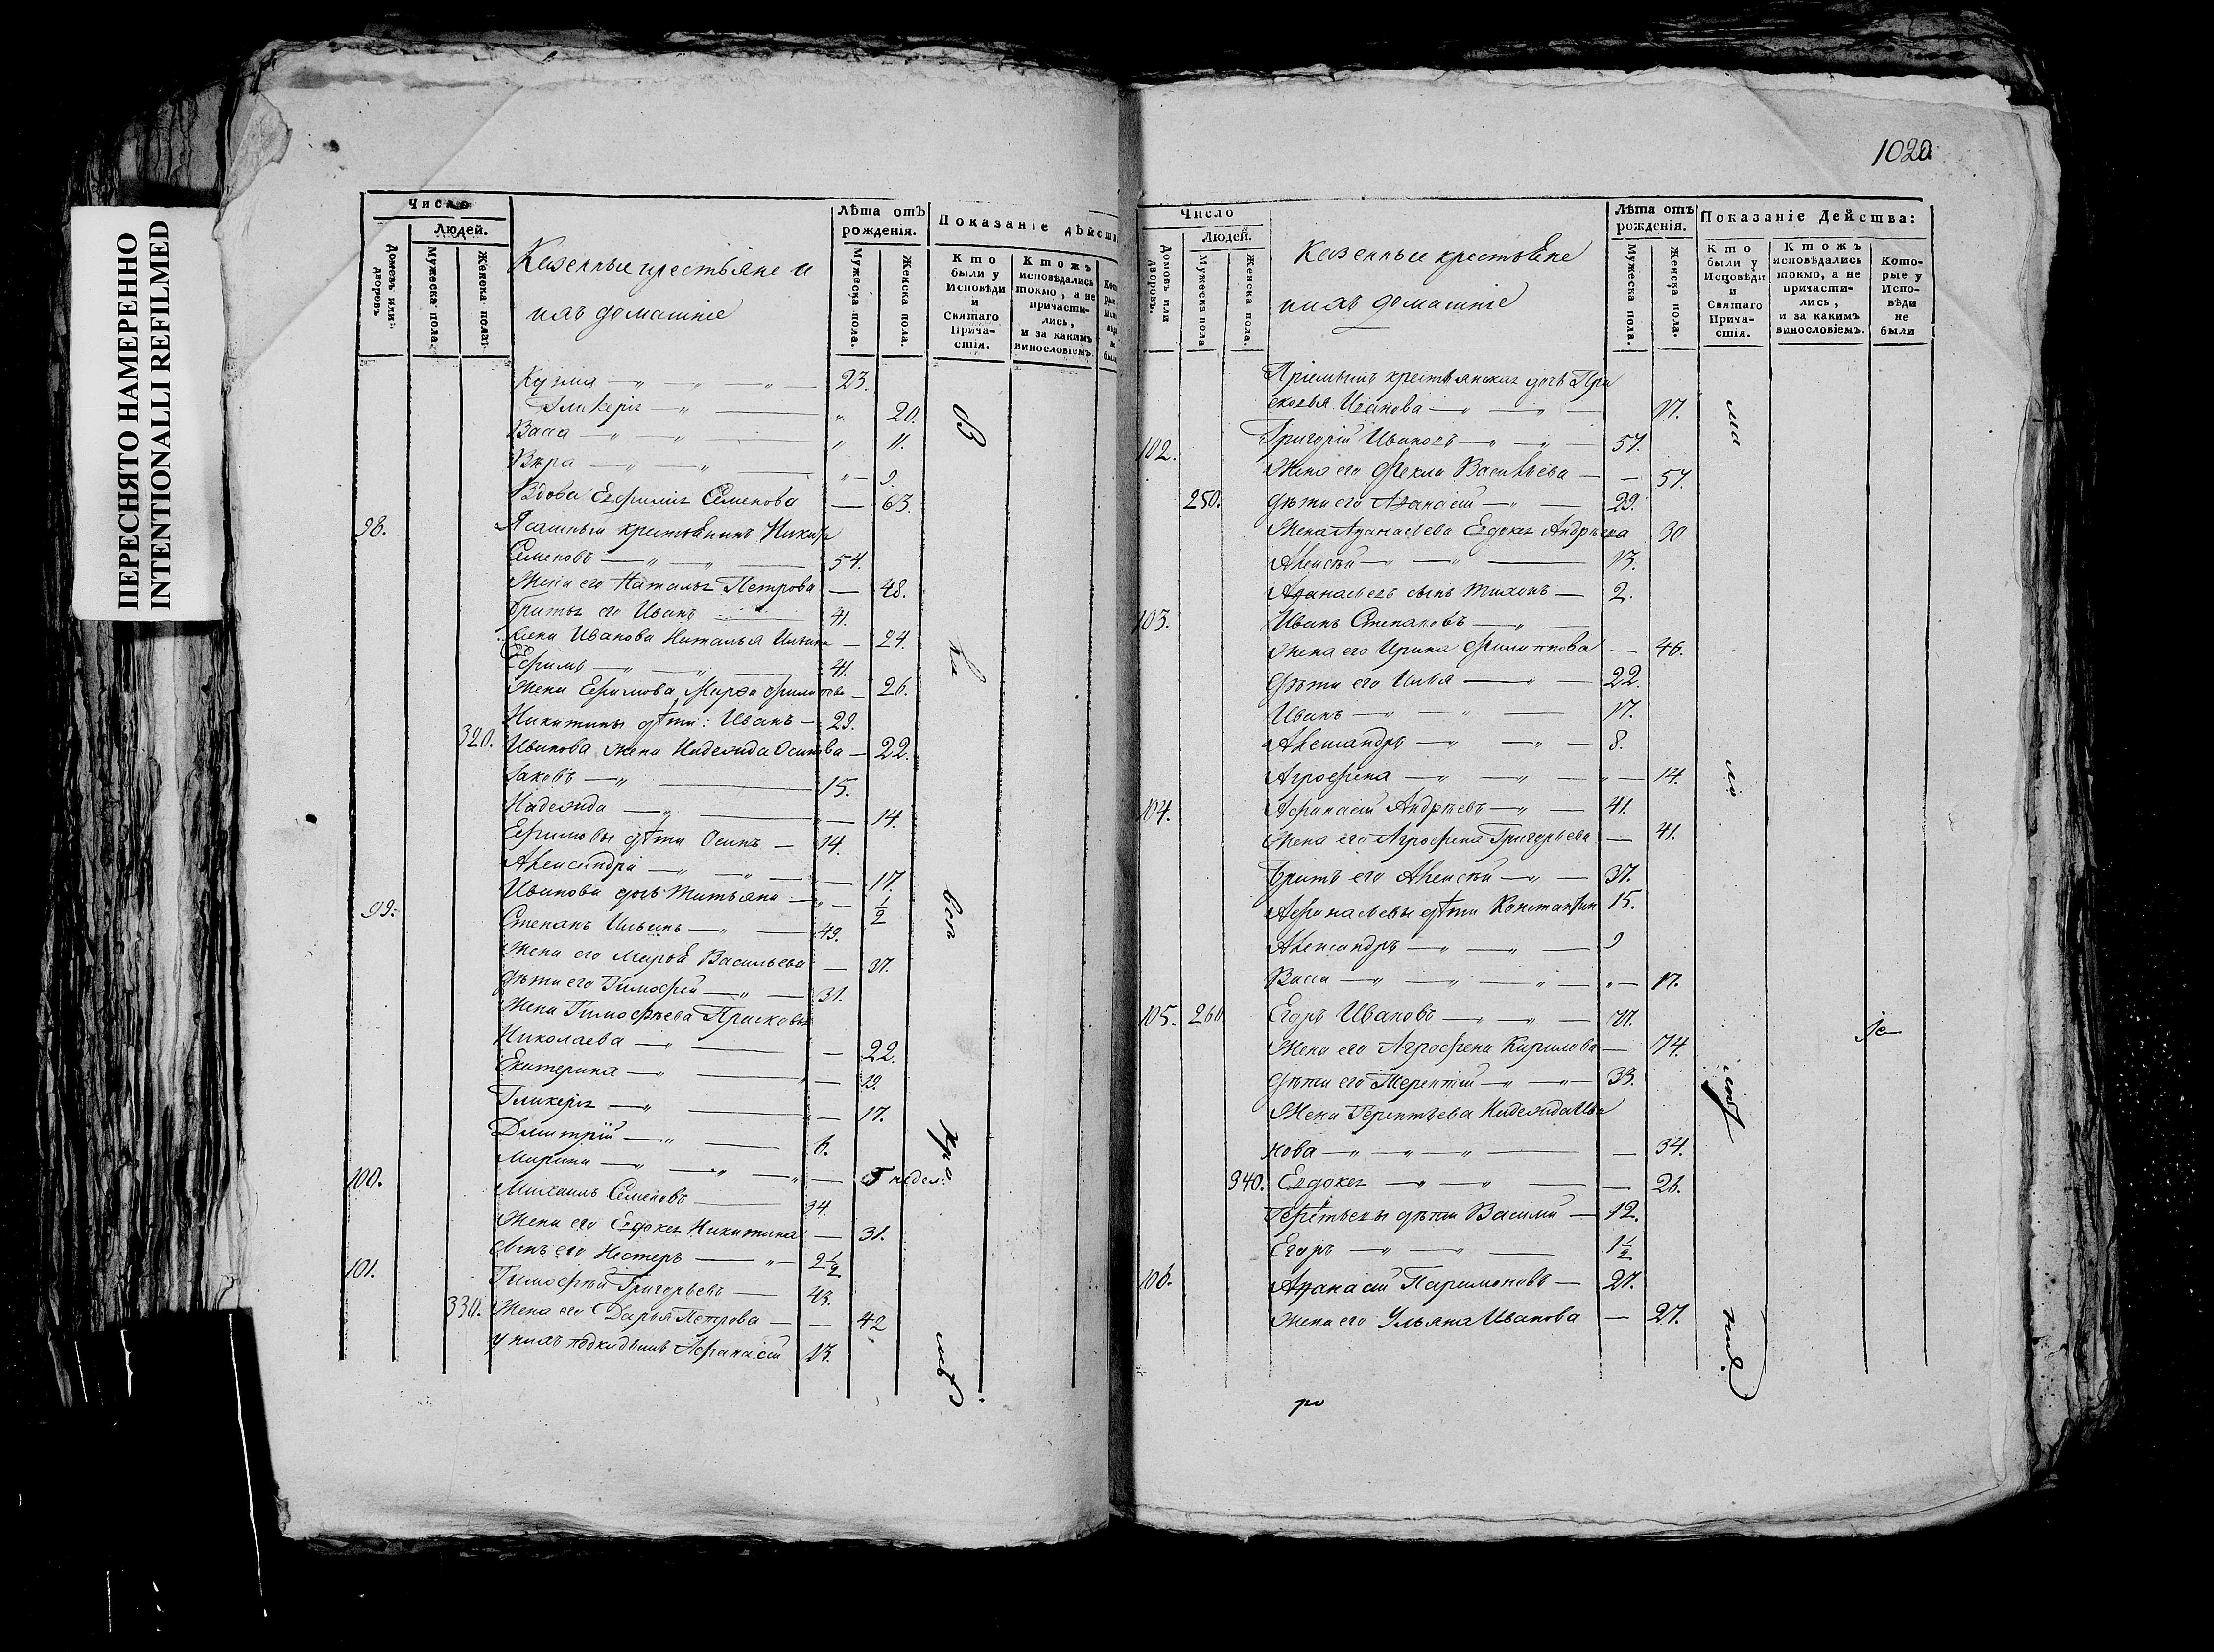 ПЕРЕСНЯТО НАМЕРЕННО
INTENTIONALLI REFILMED
1020.
Число
Людей.
Домовъ или дворовъ
Мужеска пола.
Женска пола.
Казенные крестьяне и
ихъ домашніе
Лѣта отъ рожденія.
Мужеска пола.
Женска пола.
Показаніе дѣйств
Кто были у Исповѣди и Святаго Прича-стія.
Ктожъ исповѣдались токмо, а не причасти-лись, и за какимъ винословіемъ.
Кузма — „ — „ — „ — 23.
Гликерія — „ — „ 20.
Васса — „ — „ — „ 11.
Вѣра — „ — „ — „ — 9.
Вдова Евфимія Семенова — 63.
98. Ясашный крестьянинъ Никита
Семеновъ — „ — „ — 54.
Жена его Наталья Петрова — 48.
братья его Иванъ — 41.
Жена Иванова Наталья Ильина — 24.
Ефимъ — „ — „ — 41.
Жена Ефимова Марѳа Филипова — 26.
Никитины дѣти: Иванъ — 29.
320. Иванова жена Надежда Осипова — 22.
Іаковъ — „ — 15.
Надежда — „ — 14.
Ефимовы дѣти Осипъ — 14.
Александра — „ — „ — 17.
Иванова дочь Татьяна — „ — 1/2
99. Степанъ Ильинъ — „ — 49.
Жена его Марѳа Васильева — 37.
дѣти его Тимофей — „ — 31.
Жена Тимофѣева Прасковья
Николаева — „ — — 22.
Екатерина — „ — „ — 19.
Гликерія — „ — — 17.
Дмитрій — „ — 6.
Марина — „ — „ — „ — 5 недел:
100. Михаилъ Семеновъ — 34.
Жена его Евдокія Никитина — 31.
сынъ его Нестеръ — „ — 2 1/2
101. Тимофѣй Григорьевъ — 43.
330. Жена его Дарья Петрова — — 42
у нихъ подкидышъ Афанасій 13.
Число
Людей.
Домовъ или дворовъ.
Мужеска пола
Женска пола.
Казенные крестьяне
и ихъ домашніе
Лѣта отъ рожденія.
Мужеска пола.
Женска пола.
Показаніе Действа:
Кто были у Исповѣди и Святаго Прича-стія.
Ктожъ исповѣдались токмо, а не причасти-лись, и за какимъ винословіемъ.
Кото-рые у Испо-вѣди не были
Пріемышъ крестьянская дочь Пра
сковья Иванова — „ — „ — 17.
102. Григорій Ивановъ — „ — „ — 57.
Жена его Фекла Васильева — — 57.
250. дѣти его Афанасій — „ — 29.
Жена Афанасьева Евдокія Андрѣева 30
Алексѣй — „ — „ — 13.
Афанасьевъ сынъ Тихонъ — 2.
103. Иванъ Степановъ — „ —
Жена его Ирина Филиппова — 46.
Дѣти его Илья — „ — 22.
Иванъ — „ — „ — 17.
Александръ — „ — „ — 8.
Агрофена — „ — „ — „ — 14.
104. Афанасій Андрѣевъ — „ — 41.
Жена его Агрофена Григорьева — 41.
Братъ его Алексѣй — „ — 37.
Афанасьевы дѣти Константин 15.
Александръ — „ — „ — 9
Васса — „ — „ — „ — „ — 17.
105. 260. Егоръ Ивановъ — „ — „ — 71.
Жена его Агрофена Кирилова — 74.
Дѣти его Терентій — „ — „ — 33.
Жена Терентьева Надежда Ива
нова — „ — „ — „ — — 34.
340. Евдокія — „ — „ — — 26.
Терентьевы дѣти Василій — 12.
Егоръ — „ — „ — 1 1/2
106. Афанасій Парамоновъ — 27.
Жена его Ульяна Иванова — 27.
ро